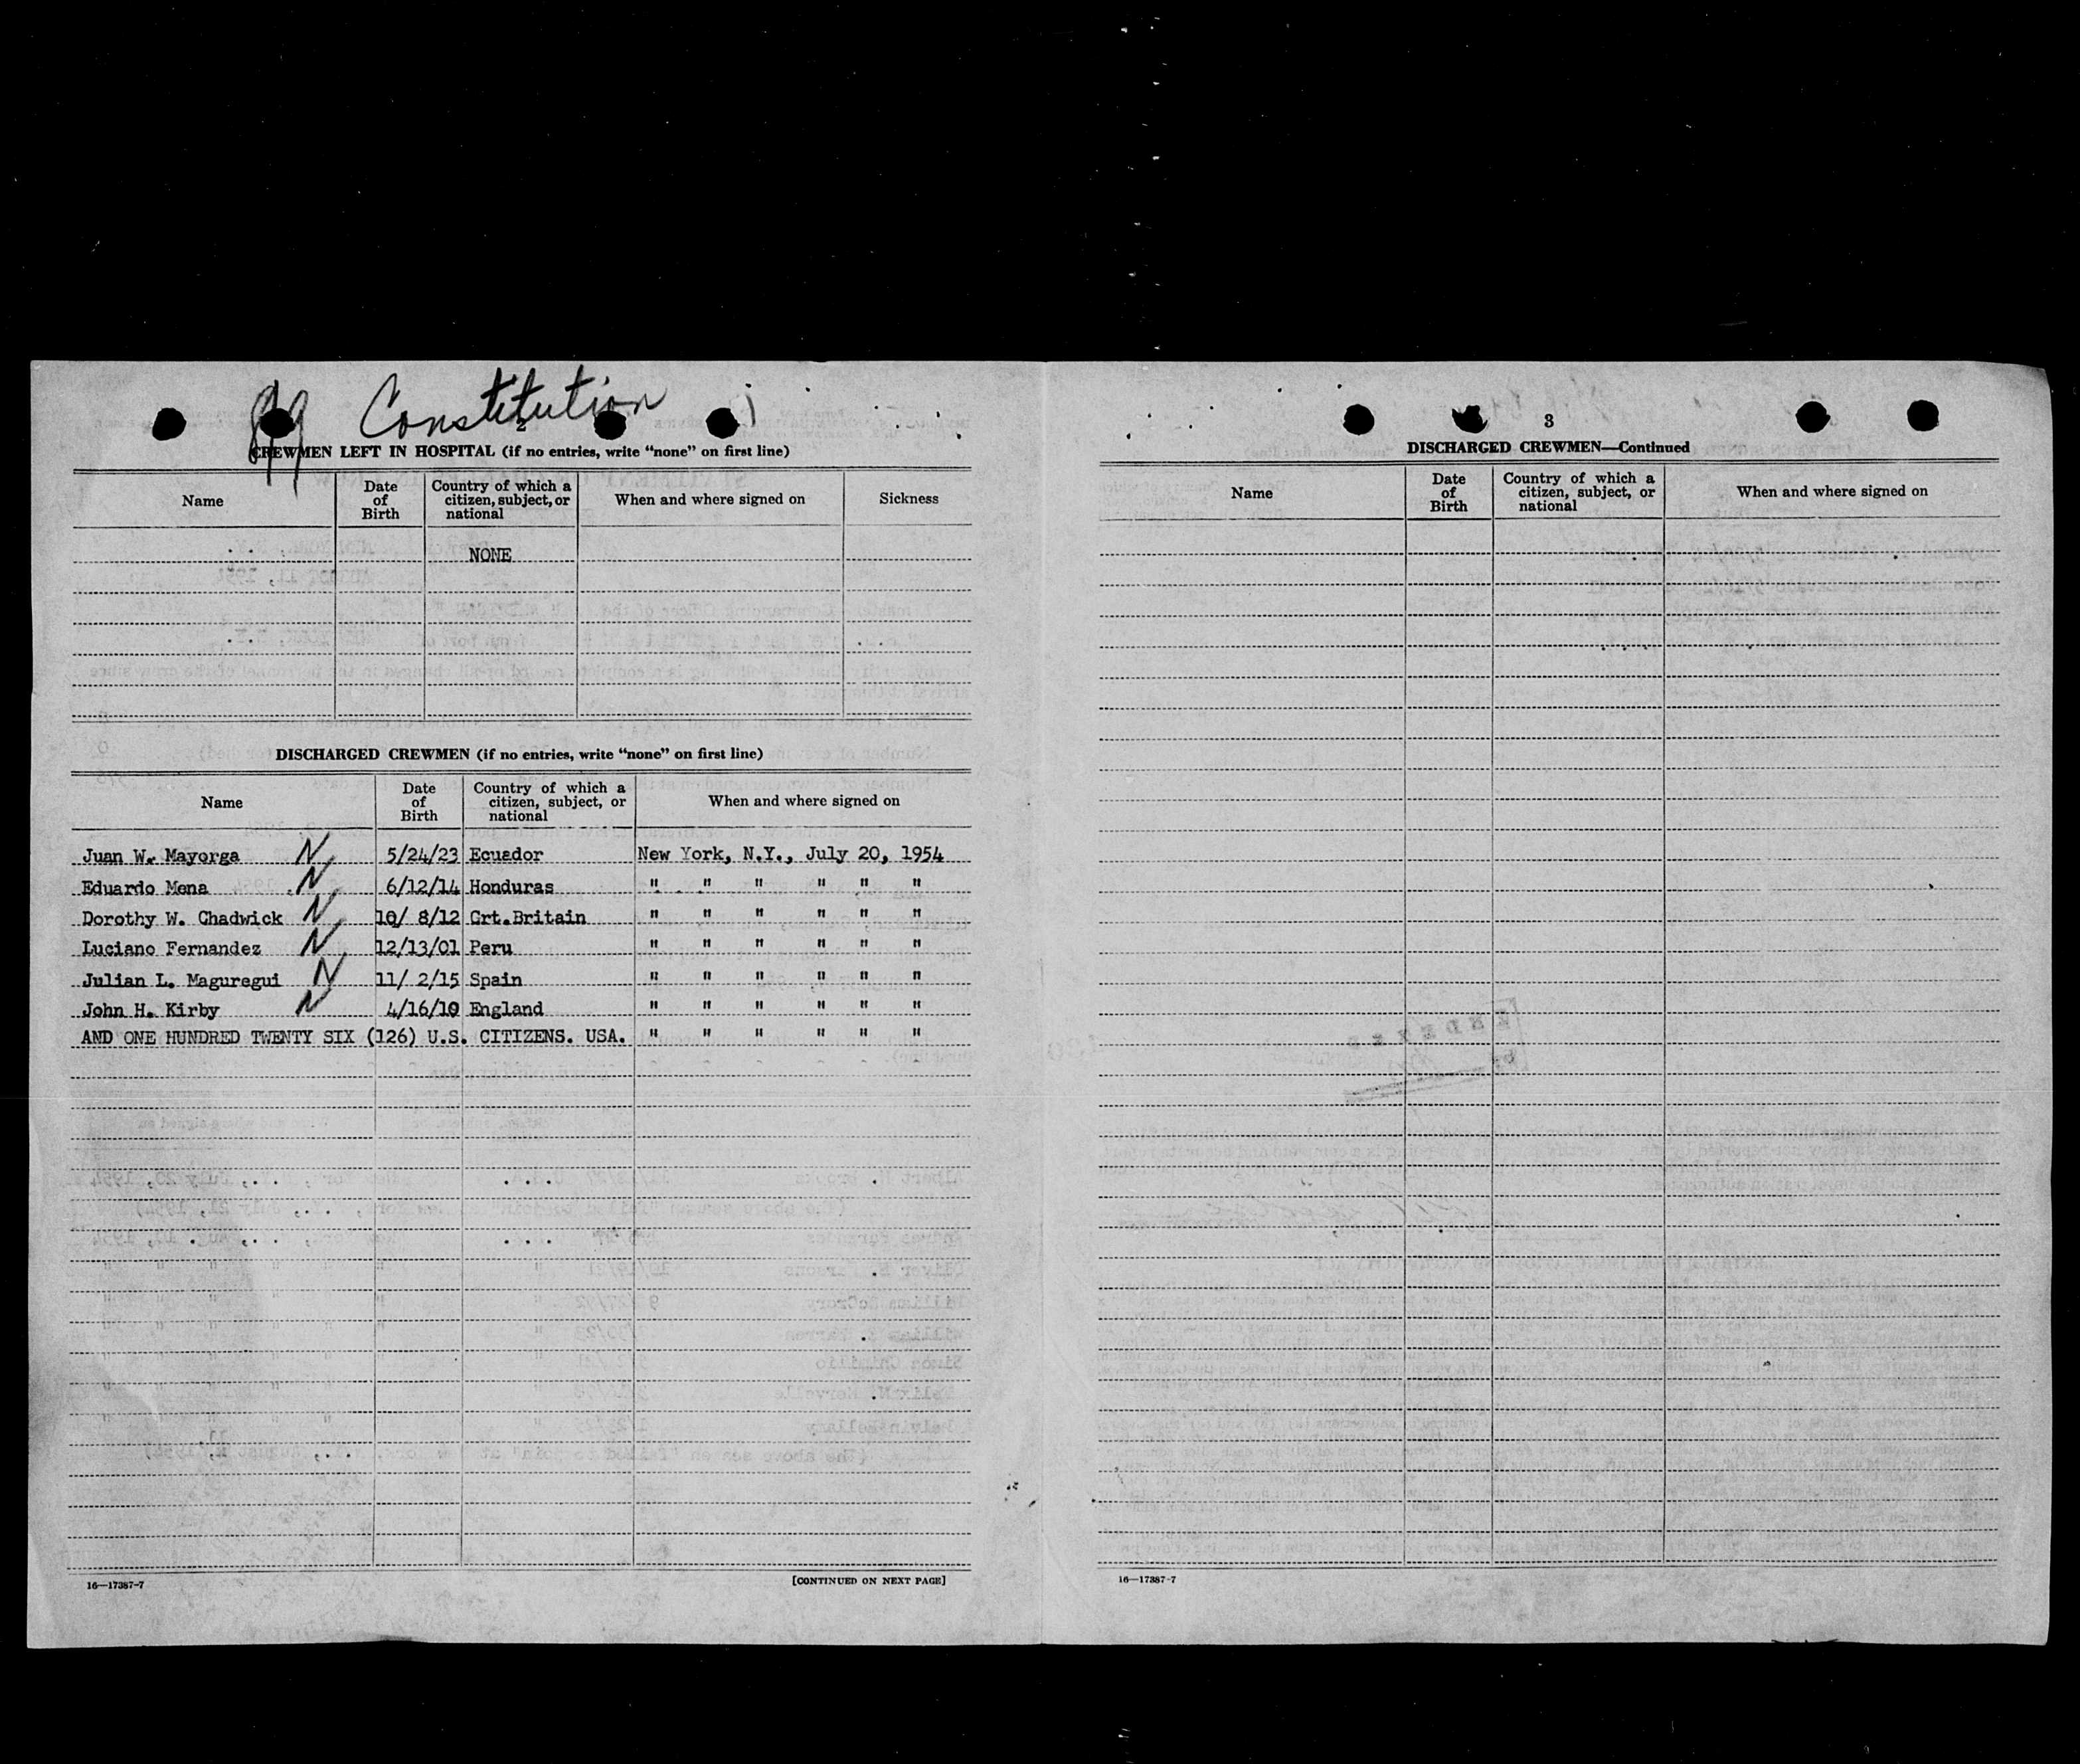 99 Constitution
2
CREWMEN LEFT IN HOSPITAL (if no entries, write “none” on first line)
Name Date of Birth Country of which a citizen, subject, or national When and where signed on Sickness
NONE
DISCHARGED CREWMEN (if no entries, write “none” on first line)
Name Date of Birth Country of which a citizen, subject, or national When and where signed on
Juan W. Mayorga N 5/24/23 Ecuador New York, N.Y., July 20, 1954
Eduardo Mena N 6/12/14 Honduras " " " " " "
Dorothy W. Chadwick N 10/ 8/12 Grt.Britain " " " " " "
Luciano Fernandez N 12/13/01 Peru " " " " " "
Julian L. Maguregui N 11/ 2/15 Spain " " " " " "
John H. Kirby N 4/16/10 England " " " " " "
AND ONE HUNDRED TWENTY SIX (126) U.S. CITIZENS. USA. " " " " " "
16—17387-7 [CONTINUED ON NEXT PAGE]
3
DISCHARGED CREWMEN—Continued
Name Date of Birth Country of which a citizen, subject, or national When and where signed on
16—17387-7